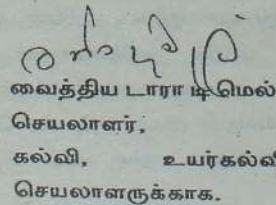 வைத்திய டாரா டி மெல்
செயலாளர்,
கல்வி, உயர்கல்வி
செயலாளருக்காக.